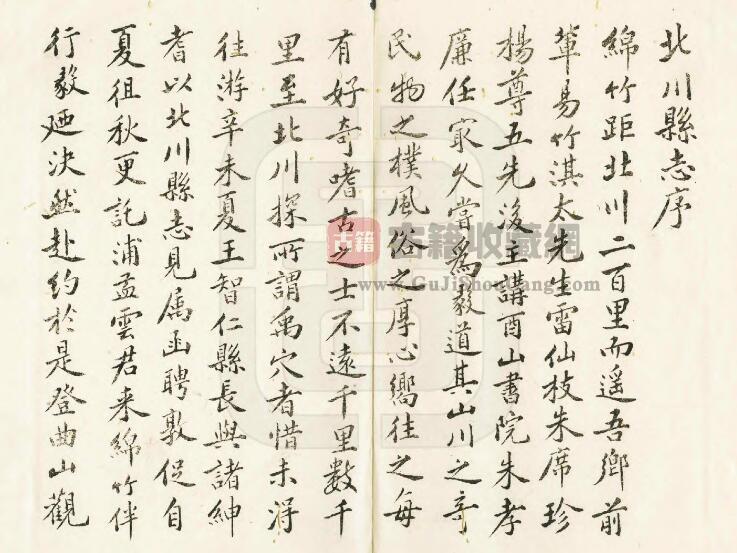 北川縣志序
綿竹距北川二百里而遥吾鄉前
輩易竹淇太先生雷仙枝朱席珍
楊尊五先後主講酉山書院朱孝
廉任家久嘗為敎道其山川之奇
民物之樸風俗之厚心嚮往之每
有好奇嗜古之士不遠千里數千
里至北川探所謂禹穴者惜未得
往游辛未夏王智仁縣長與諸紳
耆以北川縣志見属函聘敦促自
夏徂秋更託浦孟雲君来綿竹伴
行敎廼決然赴約於是登曲山觀
古籍
古籍收藏网
www.GuJiShouCang.com